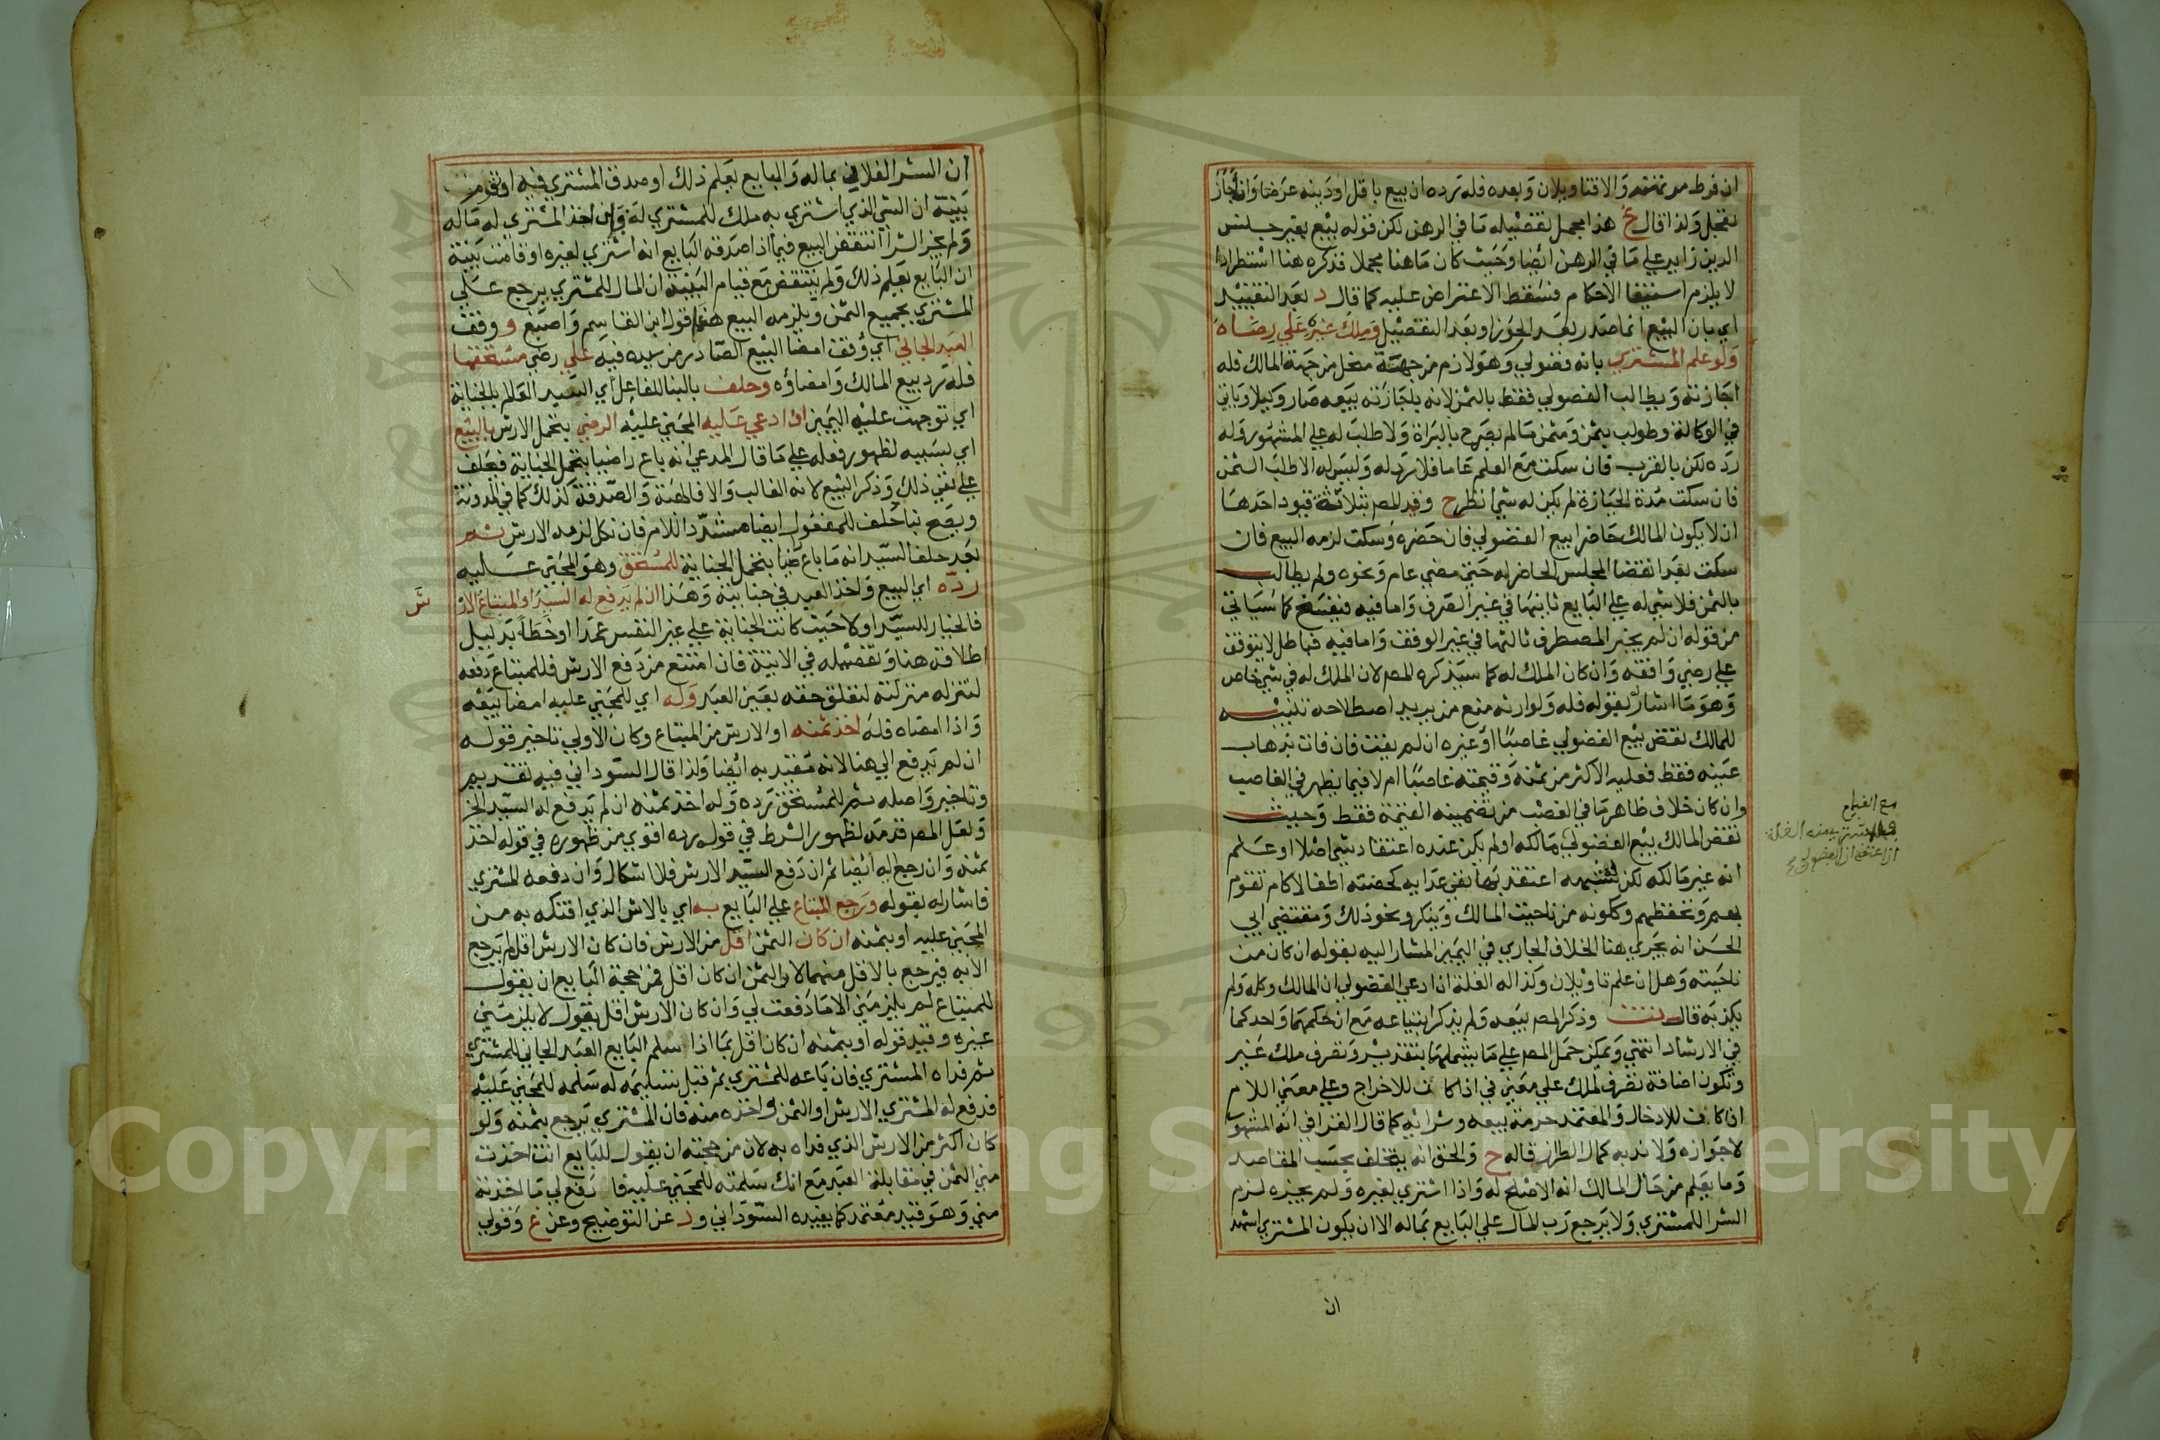 ان فرط مرتهنه والافتاويلان وبعده فله رده ان بيع باقل او دينه عرضا وان اجاز
تعجل ولذا قال غ هذا مجمل تفصيله ما في الرهن لكن قوله بيع بغير جنس
الدين زايد علي ما في الرهن ايضا وحيث كان ما هنا مجملا فذكره هنا استطرادا
لا يلزم استيفا الاحكام فسقط الاعتراض عليه كما قال د بعد التقييد
اي بان البيع انما صدر بعد الحوز او بعد التفصيل وملك غيره علي رضاه
ولو علم المشتري بانه فضولي وهو لازم من جهته منحل من جهة المالك فله
اجازته ويطالب الفضولي فقط بالثمن لانه باجازته بيعه صار وكيلا وياتي
في الوكالة وطولب بثمن ومثمن ما لم يصرح بالبراة ولا طلب له علي المشهور وله
رده لكن بالقرب فان سكت مع العلم عاما فلا رد له وليس له الا طلب الثمن
فان سكت مدة الحيازة لم يكن له شي انظر ح وقيد المص بثلاثة قيود احدها
ان لا يكون المالك حاضرا بيع الفضولي فان حضره وسكت لزمه البيع فان
سكت بعد انقضا المجلس الحاضر له حتي مضي عام ونحوه ولم يطالب
بالثمن فلا شي له علي البايع ثانيها في غير الصرف واما فيه فيفسخ كما سياتي
من قوله ان لم يخبر المصطرف ثالثها في غير الوقف واما فيه فباطل لا يتوقف
علي رضي واقفه وان كان الملك له كما سيذكره المص لان الملك له في شي خاص
وهو ما اشار بقوله فله ولوارثه منع من يريد اصطلاحه تنبيه
للمالك نقض بيع الفضولي غاصبا او غيره ان لم يفت فان فات بذهاب
عينه فقط فعليه الاكثر من ثمنه وقيمته غاصبا ام لا فيما يظهر في الغاصب
وان كان خلاف ظاهر ما في الغصب من تضمينه القيمة فقط وحيث
نقض المالك بيع الفضولي مالكه او لم يكن عنده اعتقاد شي اصلا او علم
انه غير مالكه لكن لشبهة اعتقد بها نفي عدايه كحضنته اطفالا كام تقوم
بهم وتحفظهم وكلونه من ناحية المالك وينكر ونحو ذلك ومقتضي ابي
الحسن انه يجري هنا الخلاف الجاري في اليمين المشار اليه بقوله ان كان من
ناحيته وهل ان علم تاويلان وكذا له الغلة اذا ادعي الفضولي ان المالك وكله ولم
يكذبه قال وذكر المص بيعه ولم يذكر ابتياعه مع ان حكمهما واحد كما
في الارشاد انتهي ويمكن حمل المص علي ما يشملهما بتقدير وتصرف ملك غير
وتكون اضافة تصرف لملك علي معني في اذا كانت للاخراج وعلي معني اللام
ان كانت للادخال والمعتمد حرمة بيعه وشرائه كما قال القرافي انه المشهور
لا جوازه ولا ندبه كما للطراز قاله ح والحق انه يختلف بحسب المقاصد
وما يعلم من حال المالك انه الاصلح له واذا اشتري لغيره ولم يجيزه لزم
الشرا للمشتري ولا يرجع رب المال علي البايع بماله الا ان يكون المشتري اشهد
ان
مع القيام
ان الشرا لفلان بماله والبايع يعلم ذلك او صدق المشتري فيه او تقوم
بينة ان الشي الذي اشتري به ملك للمشتري له وان اخذ المشتري له ماله
ولم يجز الشرا انتقض البيع فيما اذا صدقه البايع انه اشتري لغيره او قامت بينة
ان البايع يعلم ذلك ولم ينتقض مع قيام البينة ان المال للمشتري يرجع علي
المشتري بجميع الثمن ويلزمه البيع هذا قول ابن القاسم واصبغ و ووقف
العبد الجاني اي وقف امضا البيع الصادر من سيده فيه علي رضي مستحقها
فله رد بيع المالك وامضاؤه وحلف بالبنا للفاعل اي السيد العالم بالجناية
اي توجهت عليه اليمين اذا ادعي عليه المجني عليه الرضي بتحمل الارش بالبيع
اي بسببه لظهور فعله علي ما قال المدعي انه باع راضيا بتحمل الجناية فيحلف
علي نفي ذلك وذكر البيع لانه الغالب والا فالهبة والصدقة كذلك كما في المدونة
ويصح بنا حلف للمفعول ايضا مشدد اللام فان نكل لزمه الارش ثم
بعد حلف السيد انه ما باع رضيا بتحمل الجناية للمستحق وهو المجني عليه
رده اي البيع واخذ العبد في جنايته وهذا ان لم يدفع له السيد او المبتاع الار
ش
فالخيار للسيد اولا حيث كانت الجناية علي غير النفس عمدا او خطا بدليل
اطلاقه هنا وتفصيله في الاتية فان امتنع من دفع الارش فللمبتاع دفعه
لتنزله منزلته لتعلق حقه بعين العبد وله اي للمجني عليه امضا بيعه
واذا امضاه فله اخذ ثمنه او الارش من المبتاع وكان الاولي تاخير قوله
ان لم يدفع الي هنا لانه مقيد به ايضا ولذا قال السوداني فيه تقديم
وتاخير واصله ثم للمستحق رده وله اخذ ثمنه ان لم يدفع له السيد الخ
ولعل المص قدمه لظهور الشرط في قوله رده اقوي من ظهوره في قوله اخذ
ثمنه وان رجع له ايضا ثم ان دفع السيد الارش فلا اشكال وان دفعه المشتري
فاشار له بقوله ورجع المبتاع علي البايع به اي بالارش الذي افتكه به من
المجني عليه او بثمنه ان كان الثمن اقل من الارش فان كان الارش اقل لم يرجع
الا به فيرجع بالاقل منهما لان الثمن ان كان اقل فمن حجة البايع ان يقول
للمبتاع لم يلزمني الا ما دفعت لي وان كان الارش اقل يقول لا يلزمني
غيره وقيد قوله او بثمنه ان كان اقل بما اذا سلم البايع العبد الجاني للمشتري
ثم فداه المشتري فان باعه للمشتري ثم قبل تسليمه له سلمه للمجني عليه
فدفع له المشتري الارش او الثمن واخذه منه فان المشتري يرجع بثمنه ولو
كان اكثر من الارش الذي فداه به لان من حجته ان يقول للبايع انت اخذت
مني الثمن في مقابلة العبد مع انك سلمته للمجني عليه فادفع لي ما اخذته
مني وهو قيد معتمد كما يفيده السوداني و د عن التوضيح وعن غ وقولي